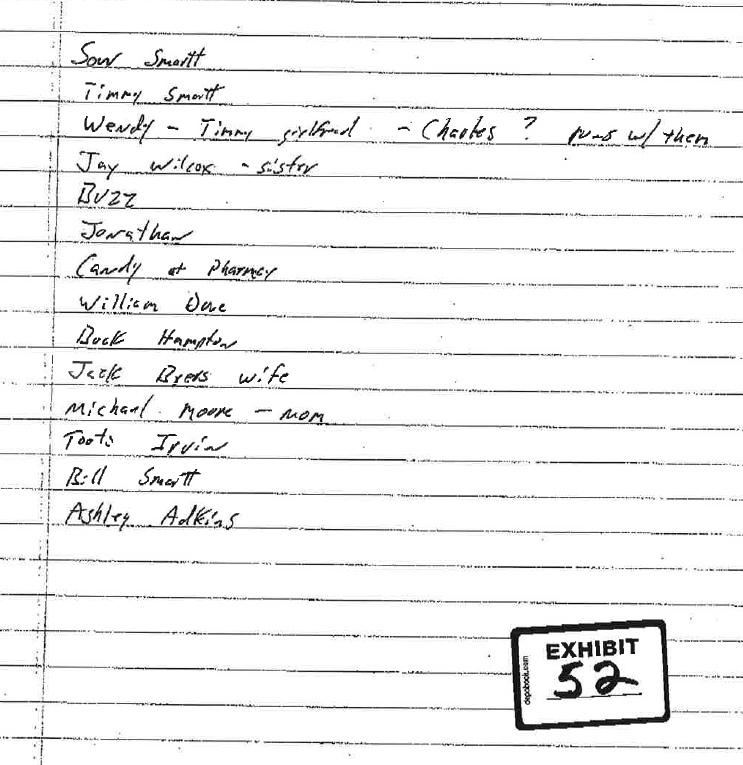 Sow Smartt
Timmy Smartt
Wendy - Timmy girlfriend - Charles ? runs w/ them
Jay Wilcox - sister
Buzz
Jonathan
Candy at Pharmacy
William Dove
Buck Hampton
Jack Byers wife
Michael Moore - mom
Toots Irvin
Bill Smartt
Ashley Adkins
EXHIBIT
52
depobook.com